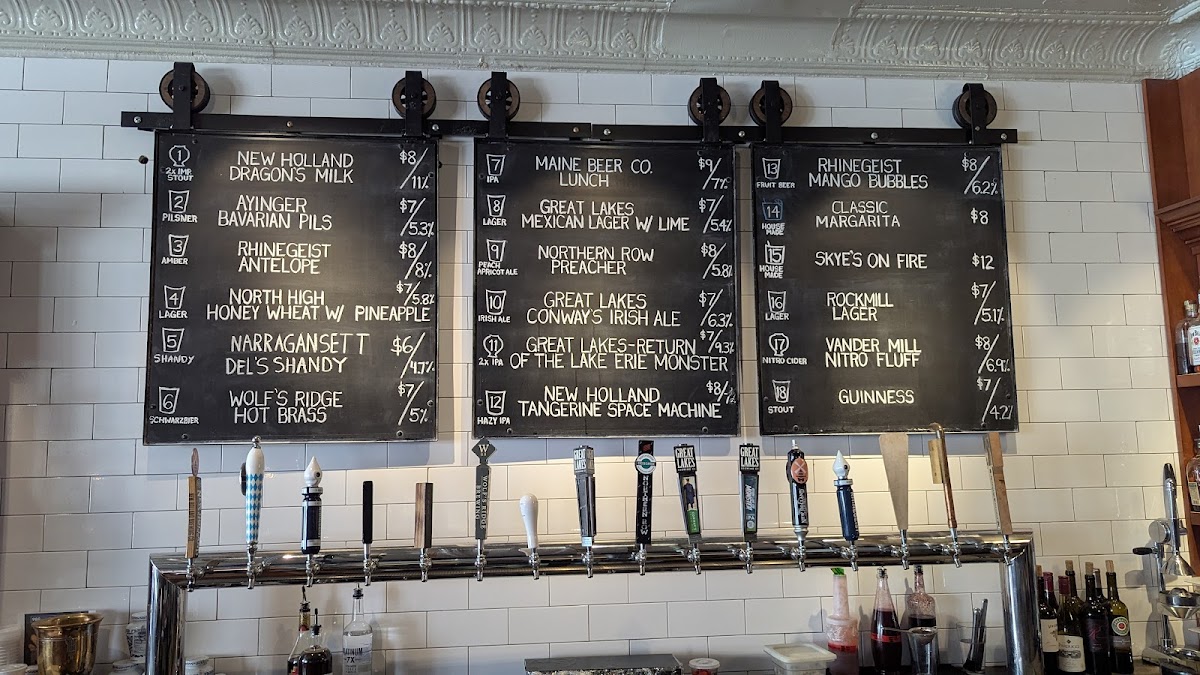 1
2X IMP. STOUT
NEW HOLLAND
DRAGON'S MILK
$8/11%
2
PILSNER
AYINGER
BAVARIAN PILS
$7/5.3%
3
AMBER
RHINEGEIST
ANTELOPE
$8/8%
4
LAGER
NORTH HIGH
HONEY WHEAT W/ PINEAPPLE
$7/5.8%
5
SHANDY
NARRAGANSETT
DEL'S SHANDY
$6/4.7%
6
SCHWARZBIER
WOLF'S RIDGE
HOT BRASS
$7/5%
7
IPA
MAINE BEER CO.
LUNCH
$9/7%
8
LAGER
GREAT LAKES
MEXICAN LAGER W/ LIME
$7/5.4%
9
PEACH
APRICOT ALE
NORTHERN ROW
PREACHER
$8/5.8%
10
IRISH ALE
GREAT LAKES
CONWAY'S IRISH ALE
$7/6.3%
11
2X IPA
GREAT LAKES-RETURN
OF THE LAKE ERIE MONSTER
$7/9.3%
12
HAZY IPA
NEW HOLLAND
TANGERINE SPACE MACHINE
$8/
13
FRUIT BEER
RHINEGEIST
MANGO BUBBLES
$8/6.2%
14
HOUSE
MADE
CLASSIC
MARGARITA
$8
15
HOUSE
MADE
SKYE'S ON FIRE
$12
16
LAGER
ROCKMILL
LAGER
$7/5.1%
17
NITRO CIDER
VANDER MILL
NITRO FLUFF
$8/6.9%
18
STOUT
GUINNESS
$7/4.2%
W
WOLF'S RIDGE
BREWING
GREAT LAKES
NORTHERN ROW
GREAT LAKES
GREAT LAKES